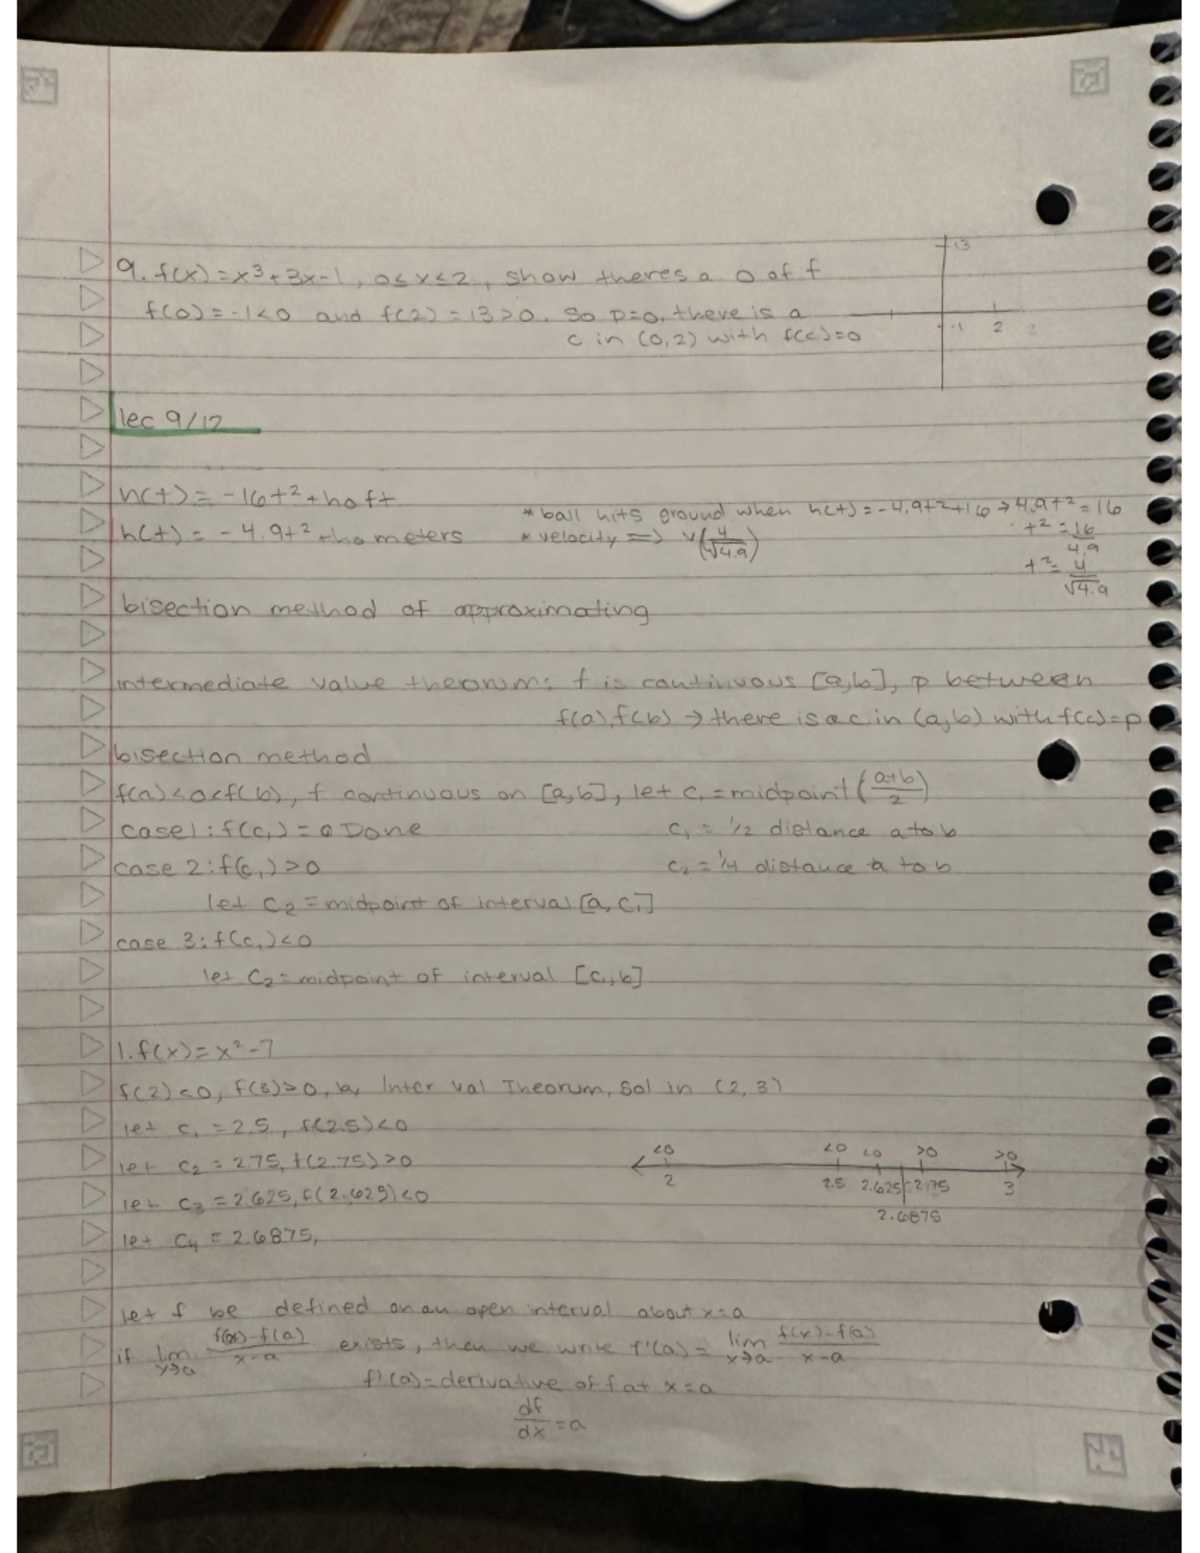 9. f(x) = x³+3x-1, 0≤x≤2, show theres a 0 of f
f(0) = -1<0 and f(2) = 13>0. So p=0, there is a
c in (0,2) with f(c)=0
13
-1 2
lec 9/12
h(t) = -16t² + ho ft
h(t) = -4.9t² + ho meters
* ball hits ground when h(t) = -4.9t²+16 → 4.9t² = 16
* velocity => v(4/√4.9)
t² = 16/4.9
t² = 4/√4.9
bisection method of approximating
intermediate value theorum: f is continuous [a,b], p between
f(a), f(b) → there is a c in (a,b) with f(c)=p
bisection method
f(a)<0<f(b), f continuous on [a,b], let c₁ = midpoint (a+b/2)
case 1: f(c₁) = 0 Done
c₁ = 1/2 distance a to b
case 2: f(c₁) >0
c₂ = 1/4 distance a to b
let c₂ = midpoint of interval [a, c₁]
case 3: f(c₁) <0
let c₂ = midpoint of interval [c₁, b]
1. f(x) = x²-7
f(2) <0, f(3)>0, by Inter val Theorum, Sol in (2, 3)
let c₁ = 2.5, f(2.5)<0
let c₂ = 2.75, f(2.75) >0
let c₃ = 2.625, f(2.625)<0
let c₄ = 2.6875,
<0 <0 <0 >0 >0
2 2.5 2.625 2.75 3
2.6875
let f be defined on an open interval about x=a
if lim x→a f(x)-f(a)/x-a exists, then we write f'(a) = lim x→a f(x)-f(a)/x-a
f'(a) = derivative of f at x=a
df/dx = a